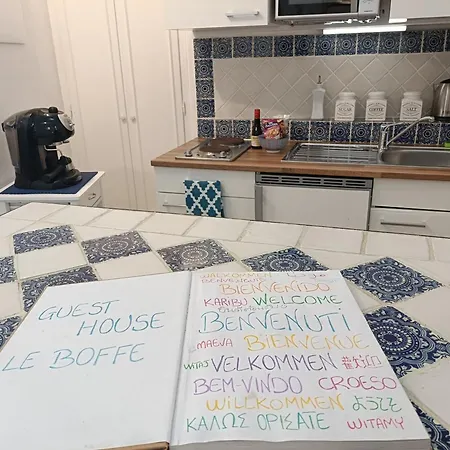 SUGAR
COFFEE
SALT
GUEST
HOUSE
LE BOFFE
WALKOMMEN
BIENVENIDO
KARIBU WELCOME
BENVENUTI
MAEVA BIENVENUE
WITAJ VELKOMMEN
BEM-VINDO CROESO
WILLKOMMEN ようこそ
ΚΑΛΩΣ ΟΡΙΣΑΤΕ WITAMY